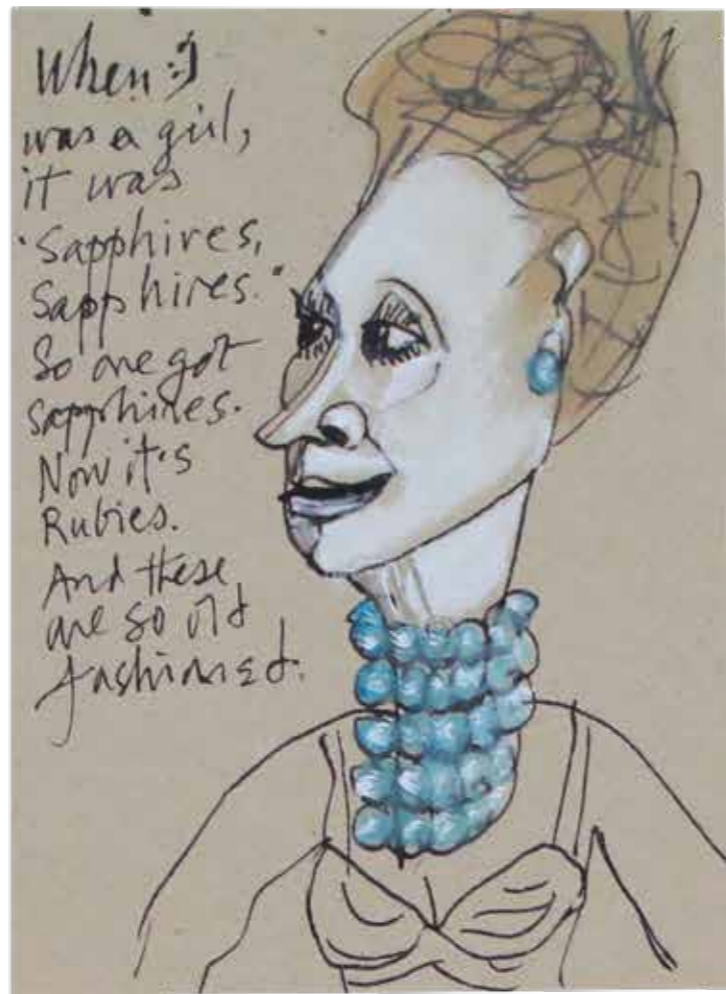 When I
was a girl,
it was
"Sapphires,
Sapphires."
So one got
sapphires.
Now it's
Rubies.
And these
are so old
fashioned.